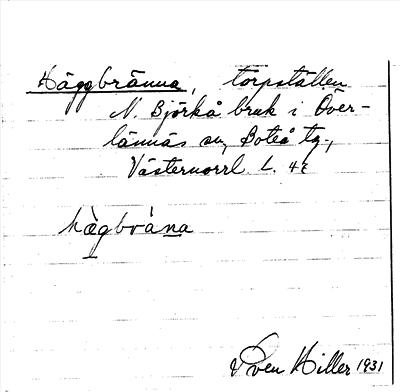 Häggbränna, torpställen
N. Björkå bruk i Över-
lännäs sn, Boteå tg,
Västernorrl. l.
hægbrȧna
Sven Hiller 1931